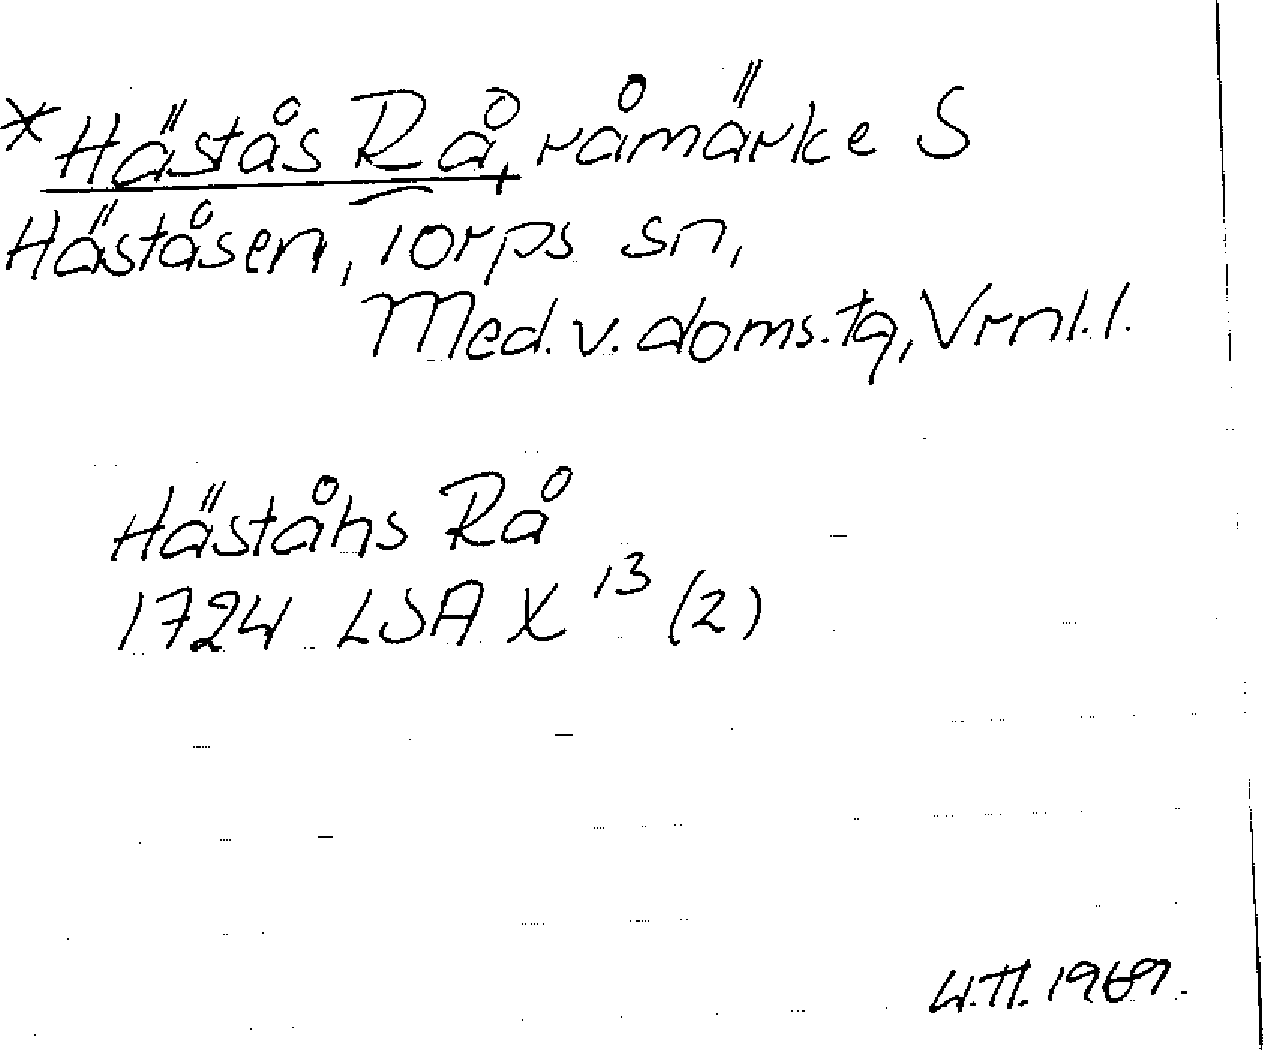 *Hästås Rå, råmärke S
Häståsen, Torps sn,
Med. v. doms. tg, Vrml. l.
Häståhs Rå
1724 LSA X 13 (2)